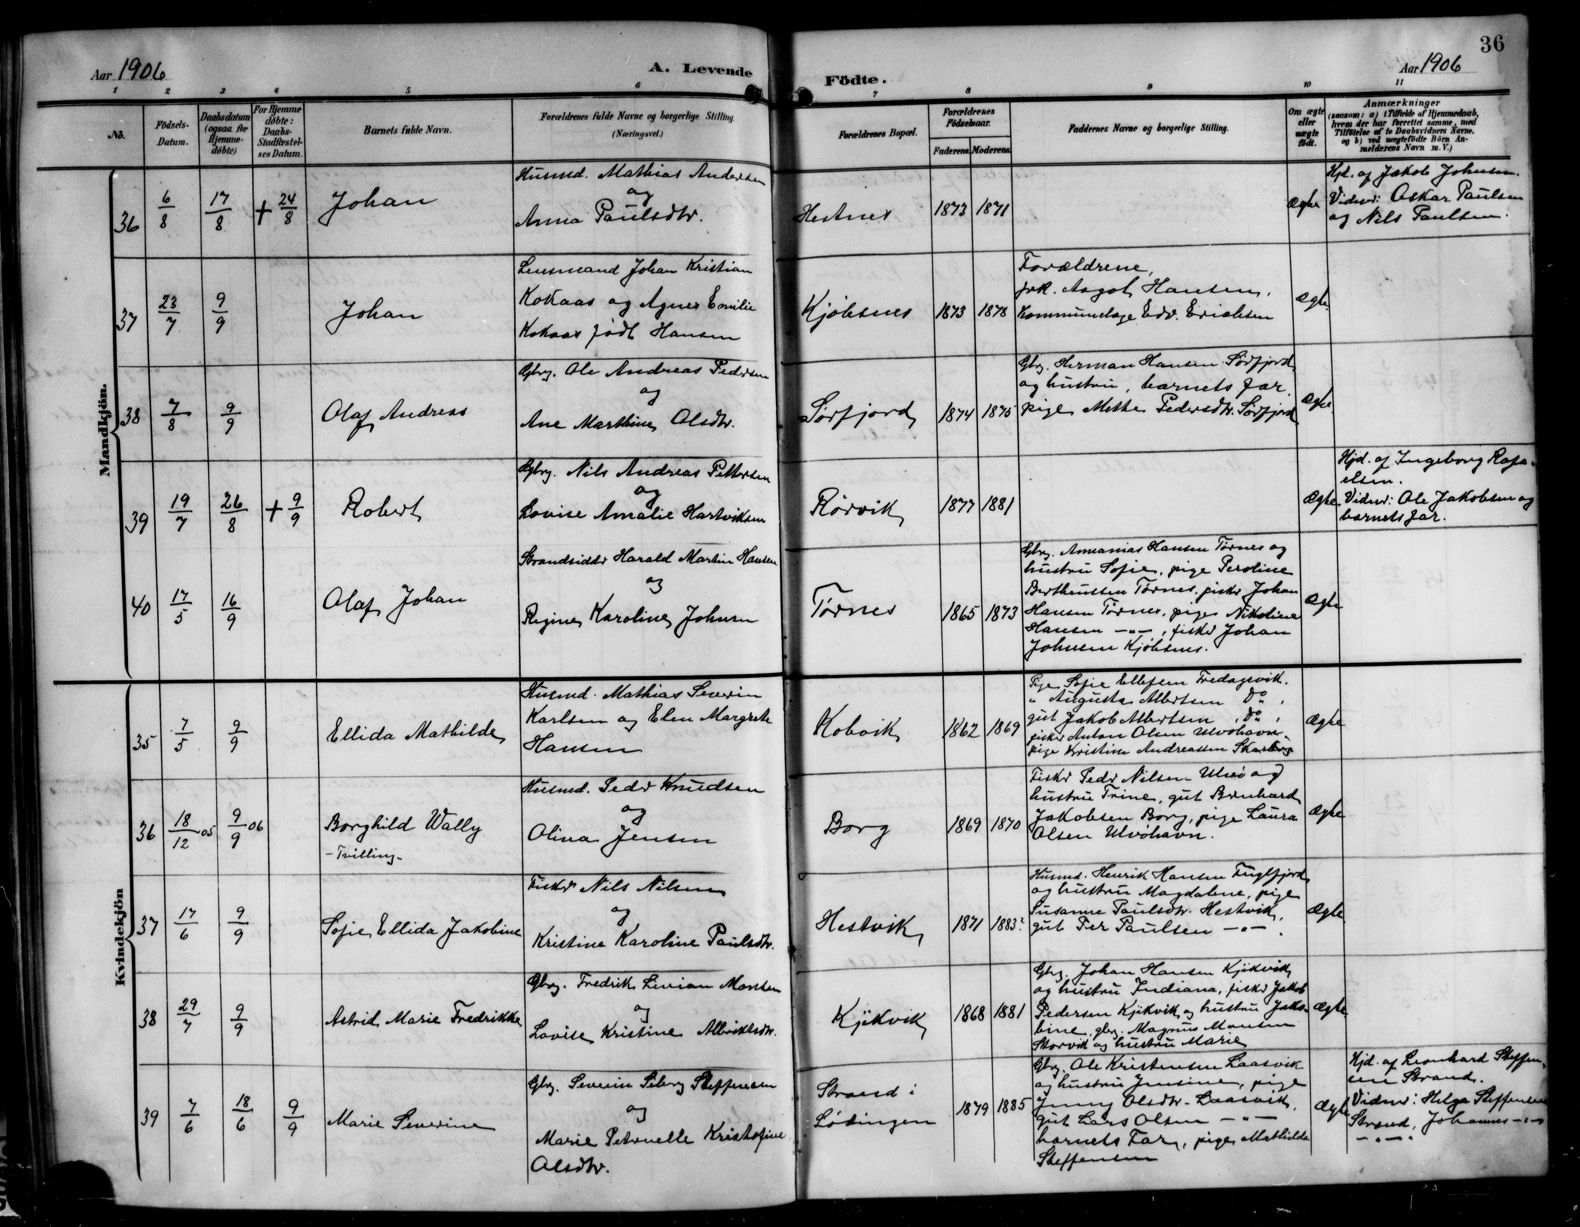 36
Aar 1906
A. Levende
Födte.
Aar 1906
1 2 3 4 5 6 7 8 9 10 11
No.
Födsels-
Datum.
Daabsdatum
(ogsaa for
Hjemme-
döbte)
For Hjemme
döbte:
Daabs-
Stadfæstel-
ses Datum.
Barnets fulde Navn.
Forældrenes fulde Navne og borgerlige Stilling.
(Næringsvei.)
Forældrenes Bopæl.
Forældrenes
Födselsaar.
Faderens. Moderens.
Faddernes Navne og borgerlige Stilling.
Om ægte
eller
uægte
födt.
Anmærkninger
(saasom: a) i Tilfælde af Hjemmedaab,
hvem der har forrettet samme, med
Tilföielse af to Daabsvidners Navne,
og b) ved uægtefödte Börn An-
melderens Navn m. V.)
Mandkjön.
36 6/8 17/8 + 24/8 Johan
Husmd. Mathias Andersen
og
Anna Paulsdtr.
Hestnes 1873 1871 Ægte
Hjd. af Jakob Johnsen.
Vidner: Oskar Paulsen
og Nils Paulsen.
37 23/7 9/9 Johan
Lensmand Johan Kristian
Kokaas og Agnes Emilie
Kokaas født Hansen
Kjøbsnes 1873 1878
Forældrene,
frk. Aagot Hansen,
Kommunelæge Edv. Erichsen
Ægte
38 7/8 9/9 Olaf Andreas
Gbrg. Ole Andreas Pedersen
og
Ane Marthine Olsdtr.
Sørfjord 1874 1875
Gbrg. Herman Hansen Sørfjord
og hustru, barnets far,
pige Methe Pedersdtr. Sørfjord
Ægte
39 19/7 26/8 + 9/9 Robert
Gbrg. Nils Andreas Pettersen
og
Lovise Amalie Hartviksen
Rørvik 1877 1881 Ægte
Hjd. af Ingeborg Rafa-
elsen.
Vidner: Ole Jakobsen og
barnets far.
40 17/5 16/9 Olaf Johan
Strandsidder Harald Martin Hansen
og
Regine Karoline Johnsen
Tørnes 1865 1873
Gbrg. Annanias Hansen Tørnes og
hustru Sofie, pige Peroline
Bertheussen Tørnes, fisker Johan
Hansen Tørnes, pige Nikoline
Hansen -"-, fisker Johan
Johnsen Kjøbsnes.
Ægte
Kvindekjön
35 7/5 9/9 Ellida Mathilde
Husmd. Mathias Severin
Karlsen og Elen Margrete
Hansen
Kobvik 1862 1869
Pige Sofie Ellefsen Fredagsvik,
" Augusta Albertsen do,
gut Jakob Albertsen, do,
fisker Anton Olsen Ulvøhavn,
pige Kristine Andreassen Skarberg
Ægte
36 18/12 05 9/9 06 Borghild Wally
- Tvilling -
Husmd. Peder Knudsen
og
Olina Jensen
Borg 1869 1870
Fisker Peder Nilsen Ulvø og
hustru Trine, gut Bernhard
Jakobsen Borg, pige Laura
Olsen Ulvøhavn.
Ægte
37 17/6 9/9 Sofie Ellida Jakobine
Fisker Nils Nilsen
og
Kristine Karoline Paulsdtr.
Hestvik 1871 1883?
Husmd. Henrik Hansen Fuglfjord
og hustru Magdalene, pige
Susanne Paulsdtr. Hestvik,
gut Per Paulsen -"-.
Ægte
38 29/7 9/9 Astrid Marie Fredrikke
Gbrg. Fredrik Livian Monsen
og
Lovise Kristine Albriktsdtr.
Kjikvik 1868 1881
Gbrg. Johan Hansen Kjikvik
og hustru Indiana, fisker Jakob
Pedersen Kjikvik og hustru Jako-
bine, gbrg. Magnus Monsen
Storvik og hustru Marie
Ægte
39 7/6 18/6 9/9 Marie Severine
Gbrg. Severin Seberg Steffensen
og
Marie Petrnelle Kristofine
Olsdtr.
Strand i
Lødingen
1879 1885
Gbrg. Ole Kristensen Laasvik
og hustru Jensine, pige
Jenny Olsdtr. Laasvik,
gut Lars Olsen -"-
barnets Far, pige Mathilde
Steffensen
Ægte
Hjd. af Leonhard Steffen-
sen Strand.
Vidner: Helga Steffensen
Strand, Johannes -"-
-"-.